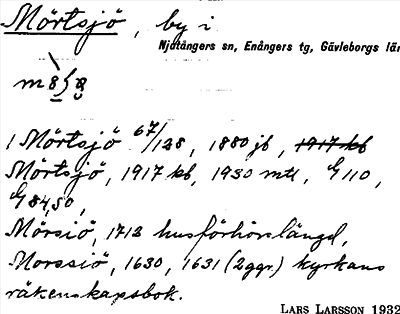 Mörtsjö, by i
Njutångers sn, Enångers tg, Gävleborgs län
1 Mörtsjö 67/128, 1880 jb, 1917 kb
Mörtsjö, 1917 kb, 1930 mtl, G 110,
G 84,50,
Mörsiö, 1713 husförhörslängd,
Morssiö, 1630, 1631 (2 ggr.) kyrkans
räkenskapsbok.
LARS LARSSON 1932